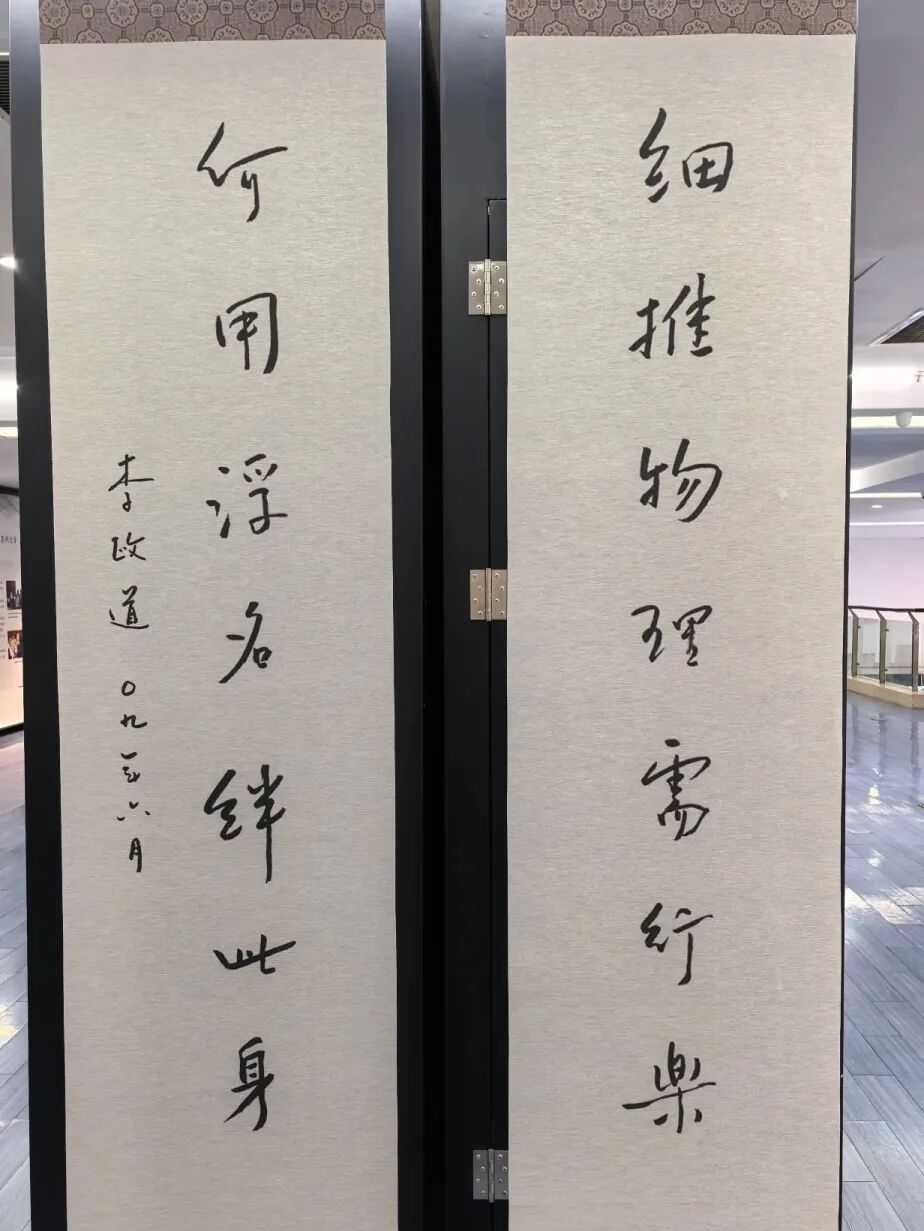 细推物理需行乐
何用浮名绊此身
李政道 〇九年六月